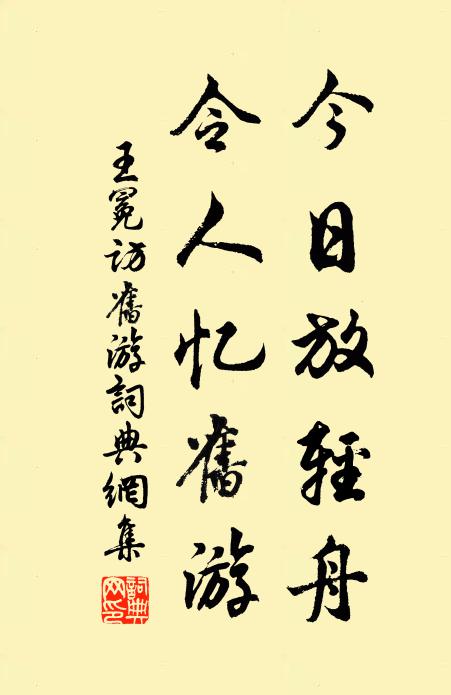 今日放輕舟
令人忆舊游
王冕访舊游詞典網集
詞典网印